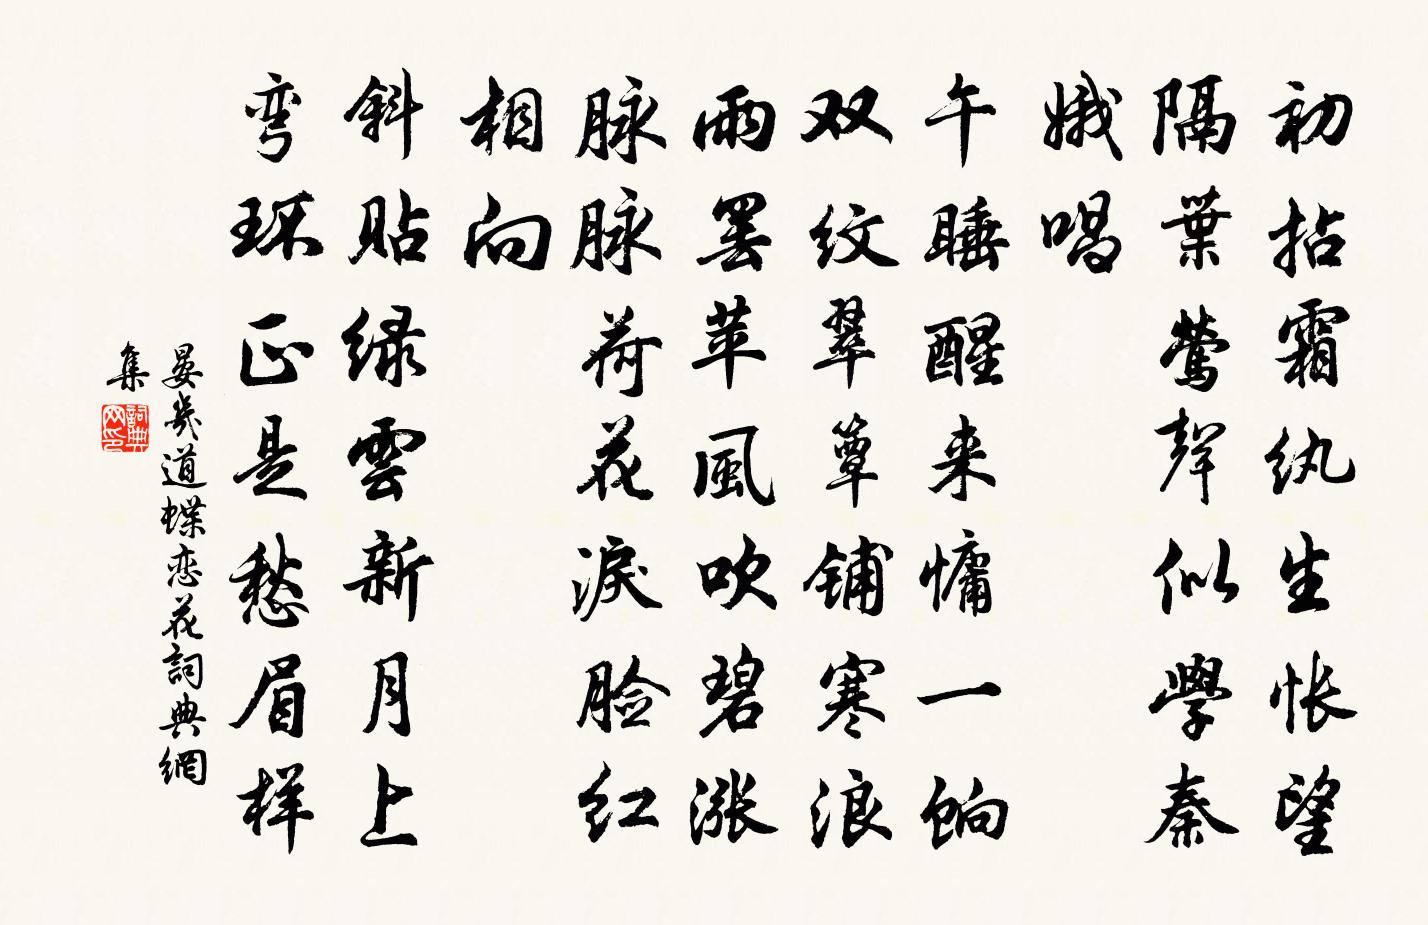 初拈霜纨生怅望
隔葉鶯聲似學秦
娥唱
午睡醒来慵一饷
双纹翠簟铺寒浪
雨罢苹風吹碧涨
脉脉荷花淚脸红
相向
斜贴绿雲新月上
弯环正是愁眉样
晏幾道蝶恋花詞典網
集
詞典
网印